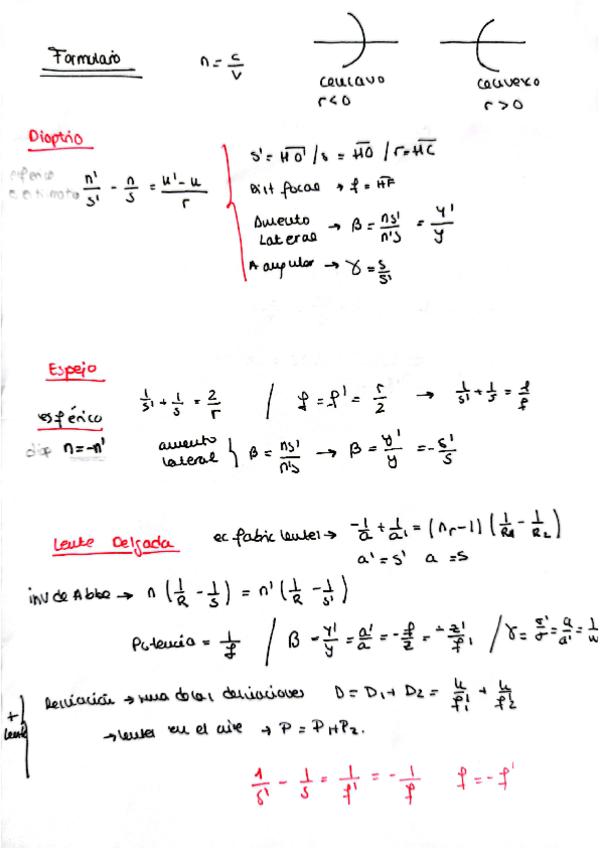 Formulario
n = c/v
concavo
r<0
convexo
r>0
Dioptrio
n'/s' - n/s = n'-n/r
s' = HO' / s = HO / r = HC
Dist focal → f = HF
Aumento Lateral → β = ns'/n's = y'/y
A angular → γ = s/s'
Espejo
esférico
diop n=-n'
1/s' + 1/s = 2/r / f = f' = r/2 → 1/s' + 1/s = 1/f
aumento lateral } β = ns'/n's → β = y'/y = -s'/s
Lente Delgada
ec fabric lentes → -1/a + 1/a' = (nr-1)(1/R1 - 1/R2)
a' = s' a = s
inv de Abbe → n(1/R - 1/s) = n'(1/R - 1/s')
Potencia = 1/f / β = y'/y = a'/a = -f/z = -z'/f' / γ = = a/a' =
+ lente
Desviación → suma de las desviaciones D = D1 + D2 = h/f'1 + h/f'2
→ lentes en el aire → P = P1+P2.
1/s' - 1/s = 1/f' = -1/f f = -f'